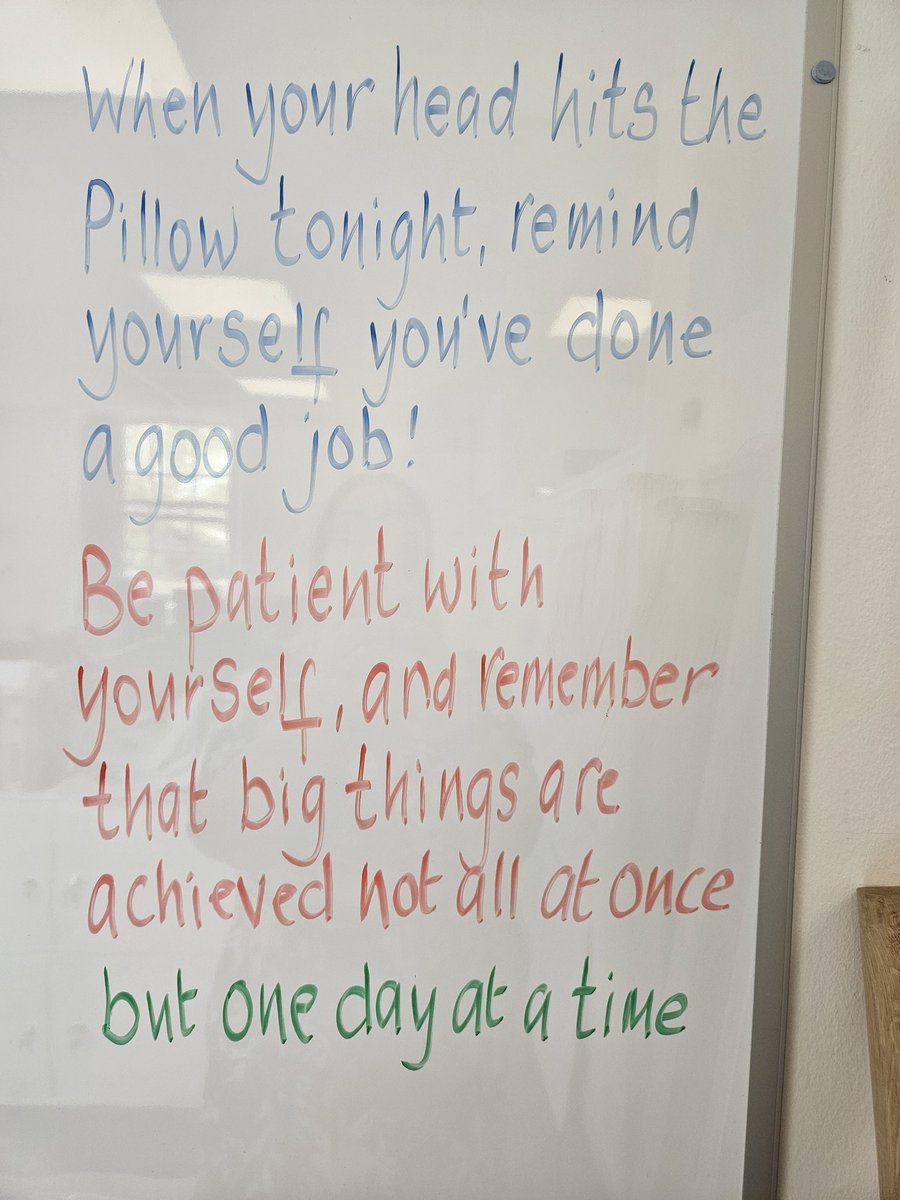 When your head hits the
Pillow tonight, remind
yourself you've done
a good job!
Be patient with
yourself, and remember
that big things are
achieved not all at once
but one day at a time